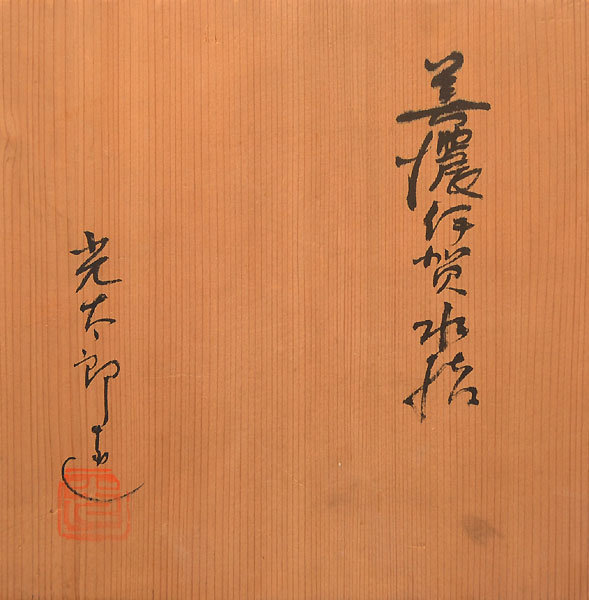 美濃伊賀水指
光太郎造